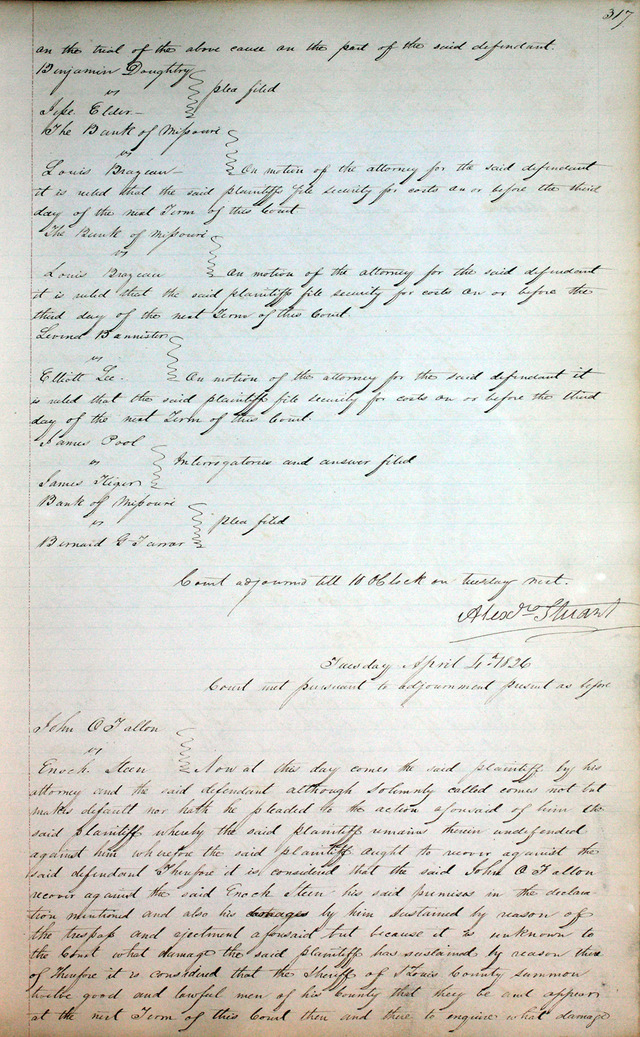 317
on the trial of the above cause on the part of the said defendant.
Benjamin Doughtry
vs
plea filed
Jesse Elder
The Bank of Missouri
vs
Louis Brazeau On motion of the attorney for the said defendant
it is ruled that the said plaintiffs file security for costs on or before the third
day of the next Term of this Court
The Bank of Missouri
vs
Louis Brazeau On motion of the attorney for the said defendant
it is ruled that the said plaintiffs file security for costs on or before the
third day of the next Term of this Court
Bannister
vs
Elliott Lee. On motion of the attorney for the said defendant it
is ruled that the said plaintiff file security for costs on or before the third
day of the next Term of this Court.
James Pool
vs
Interrogatories and answer filed
James
Bank of Missouri
vs
plea filed
Bernard G Farrar
Court adjourned till 10 OClock on tuesday next.
Alexdr Stuart
Tuesday April 4th 1826
Court met pursuant to adjournment present as before
John O Fallon
vs
Enoch Steen Now at this day comes the said plaintiff by his
attorney and the said defendant although solemnly called comes not but
makes default nor hath he pleaded to the action aforesaid of him the
said plaintiff whereby the said plaintiff remains therein undefended
against him wherefore the said plaintiff ought to recover against the
said defendant Therefore it is considered that the said John O Fallon
recover against the said Enoch Steen his said premises in the declara-
tion mentioned and also his damages by him sustained by reason of
the trespass and ejectment aforesaid but because it is unknown to
the Court what damage the said plaintiff has sustained by reason there
of Therefore it is considered that the Sheriff of St Louis County summon
twelve good and lawful men of his County that they be and appear
at the next Term of this Court then and there to enquire what damage